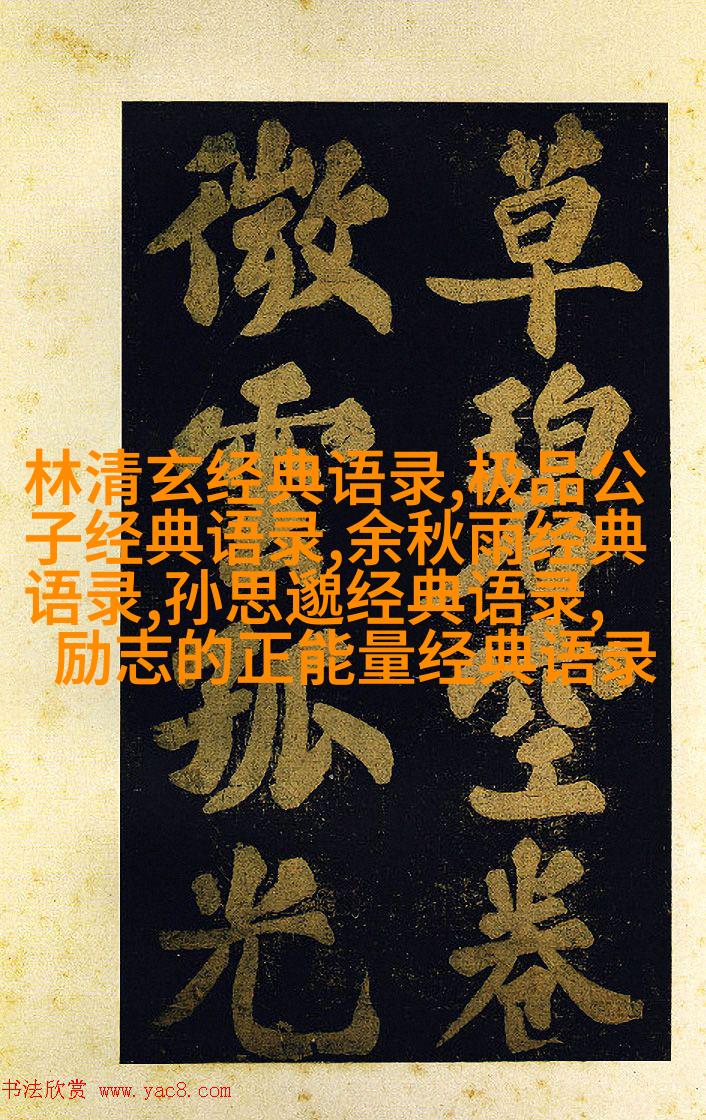 草碧空卷
微雲孤光
林清玄经典语录,极品公
子经典语录,余秋雨经典
语录,孙思邈经典语录,
励志的正能量经典语录
书法欣赏 www.yac8.com